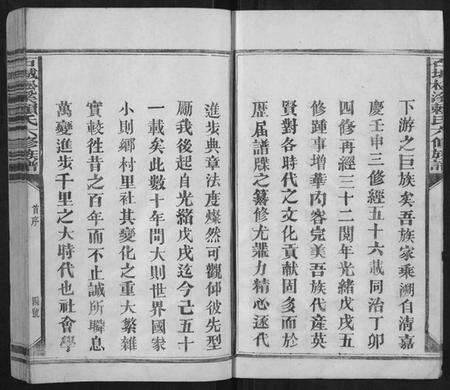 下游之巨族矣吾族家乘溯自清嘉
慶壬申三修經五十六載同治丁卯
四修再經三十二閱年光緒戊戌五
修踵事增華內容完美吾族代產英
賢對各時代之文化貢獻固多而於
歷屆譜牒之纂修尤竭力精心逐代
進步典章法度燦然可觀仰彼先型
勵我後起自光緒戊戌迄今已五十
一載矣此數十年間大則世界國家
小則鄉村里社其變化之重大繁雜
實較徃昔之百年而不止誠所瞬息
萬變進步千里之大時代也社會學
首序
四號